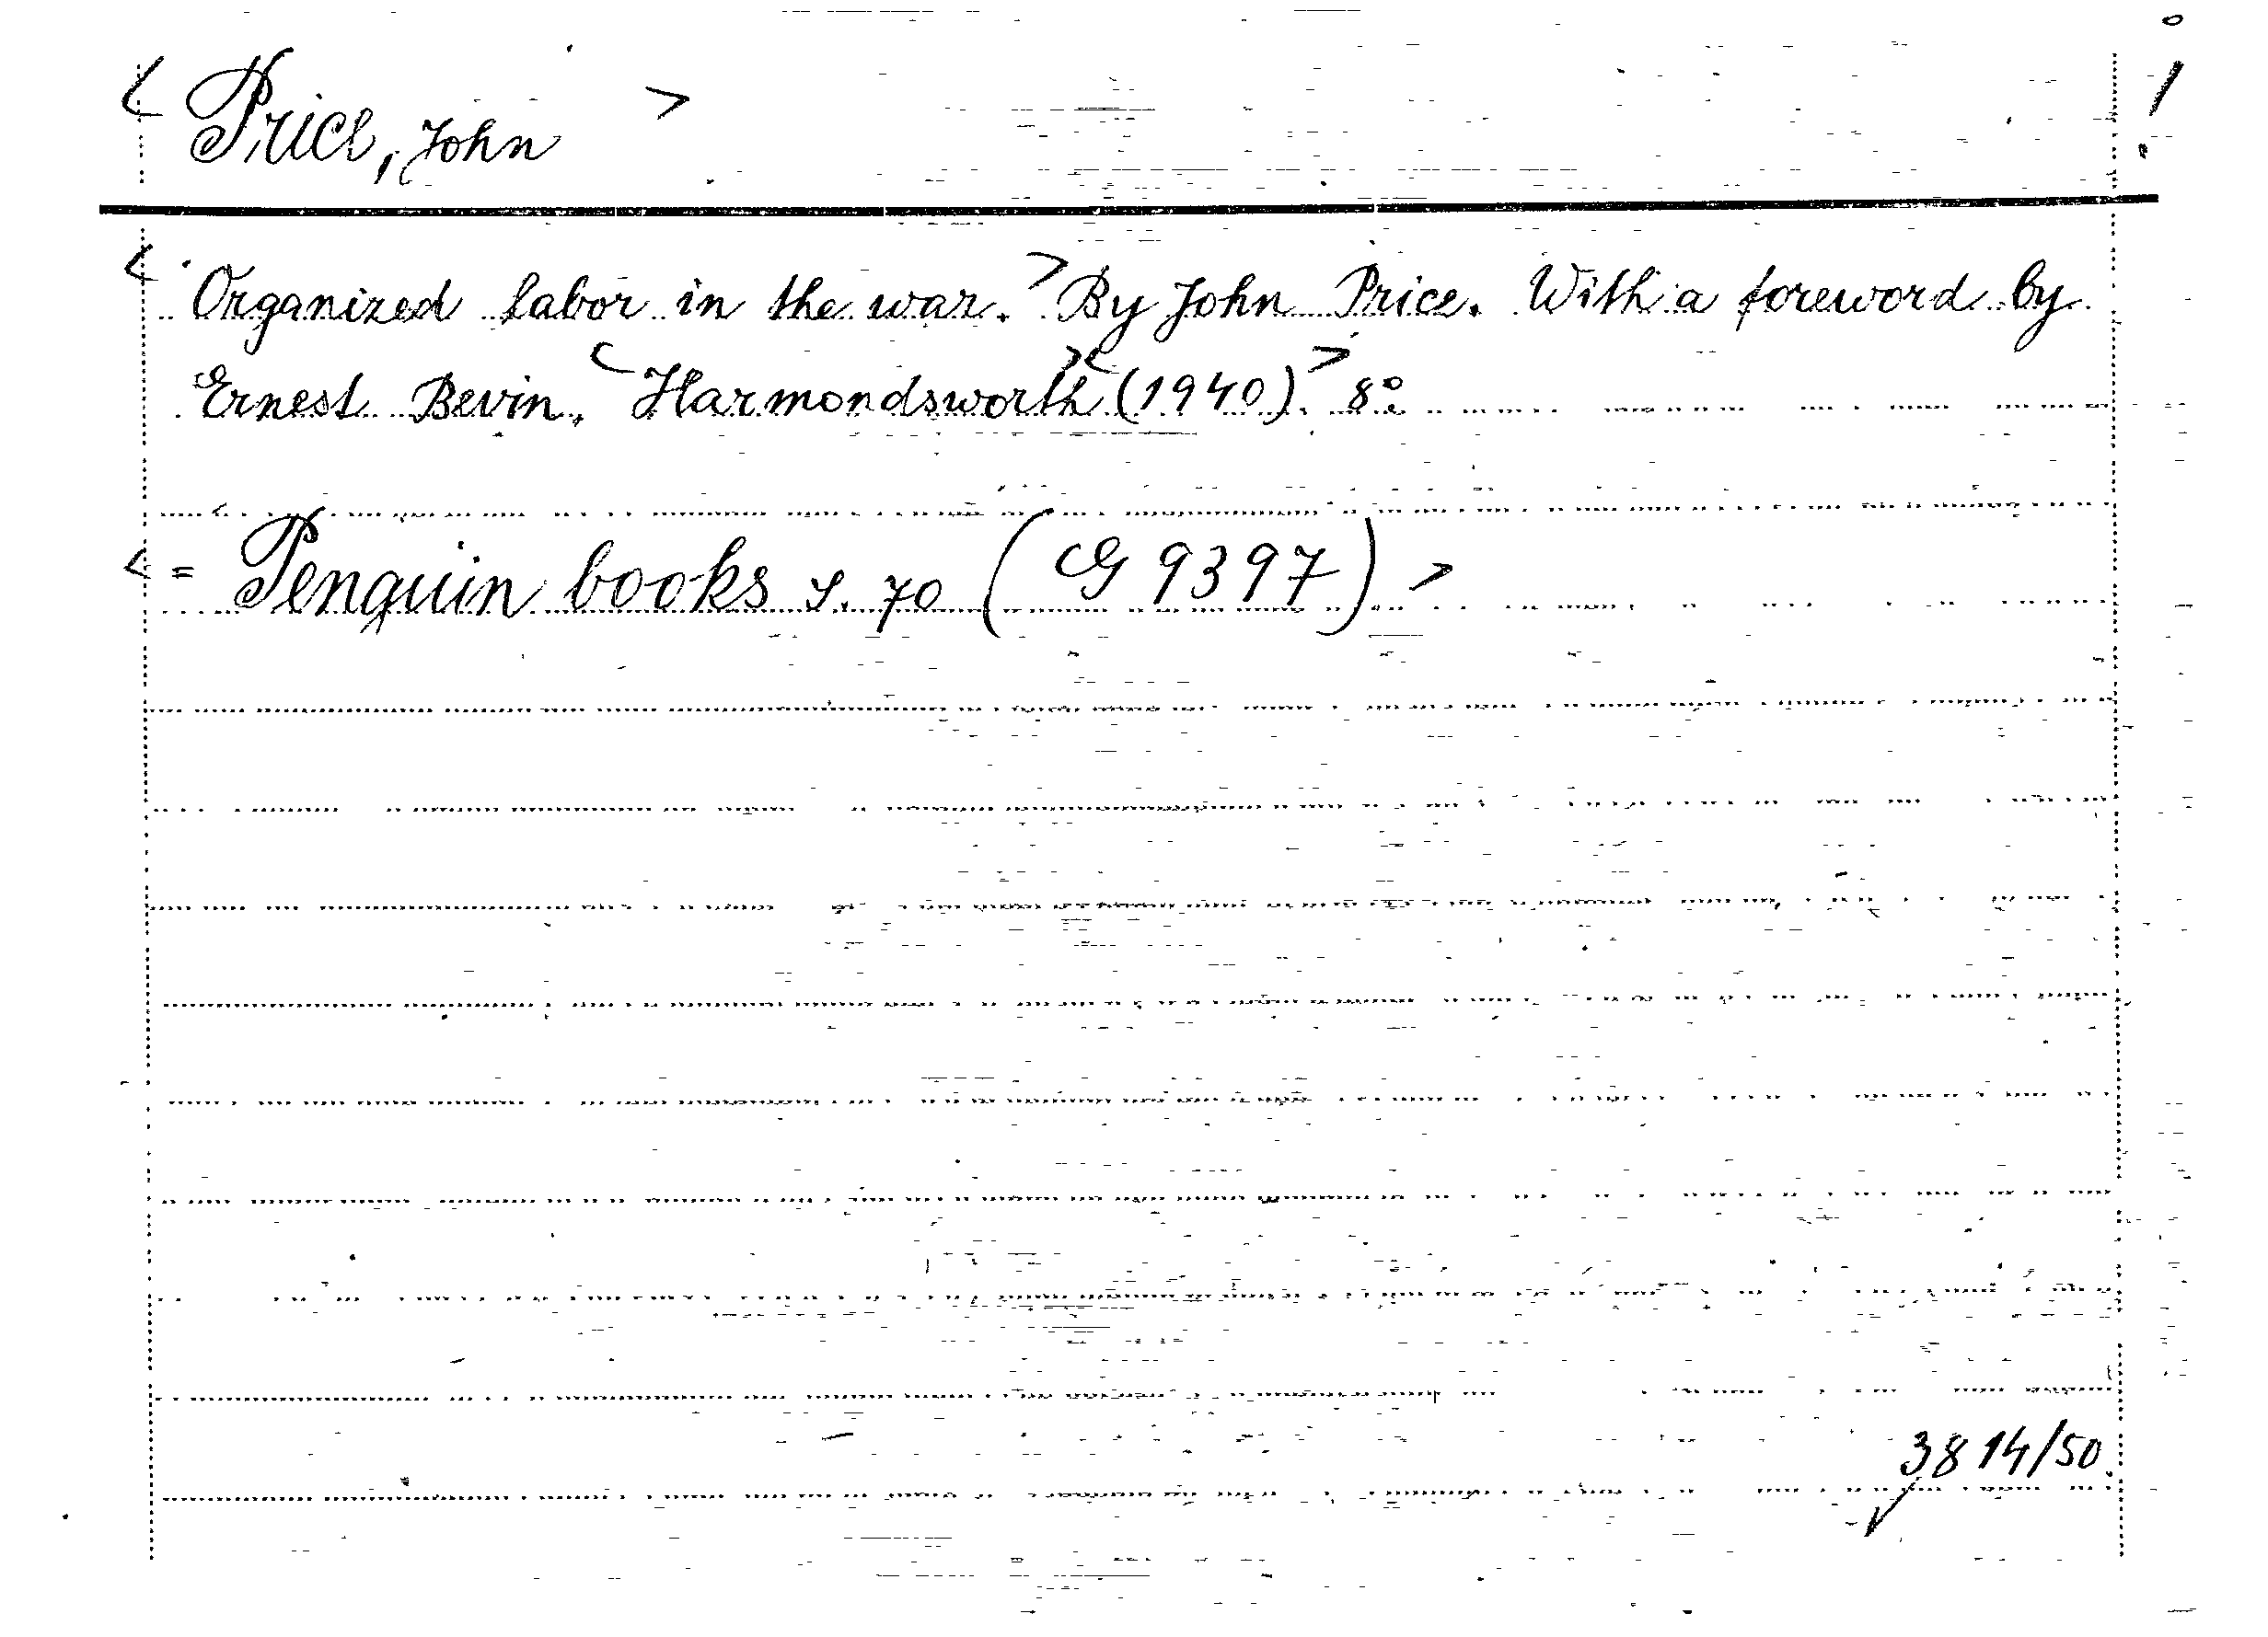 < Price, John >
< Organized labor in the war. > By John Price. With a foreword by
Ernest Bevin. < Harmondsworth >< (1940). > 8°.
< = Penguin books S. 70 (G 9397) >
3814/50.